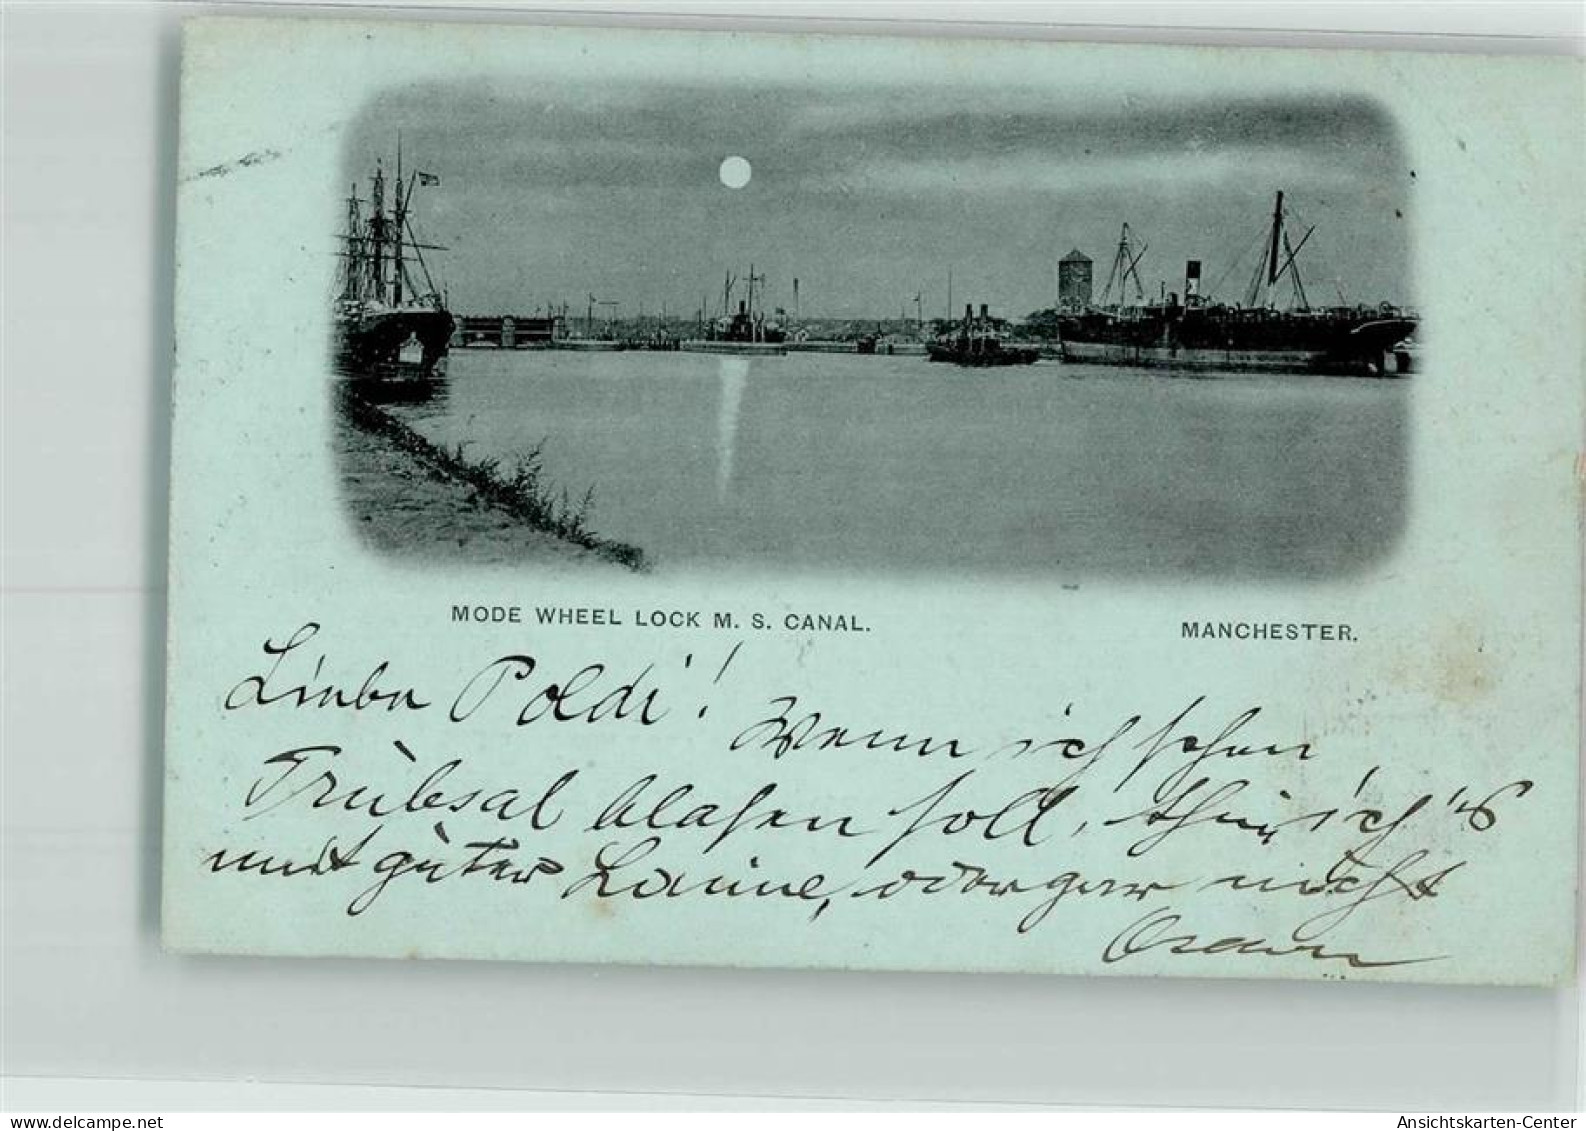 MODE WHEEL LOCK M. S. CANAL.
MANCHESTER.
Liebe Poldi! Wenn ich schon
Trübsal blasen soll, thue ich's
mit guter Laune, oder gar nicht
Oscar
www.delcampe.net
Ansichtskarten-Center